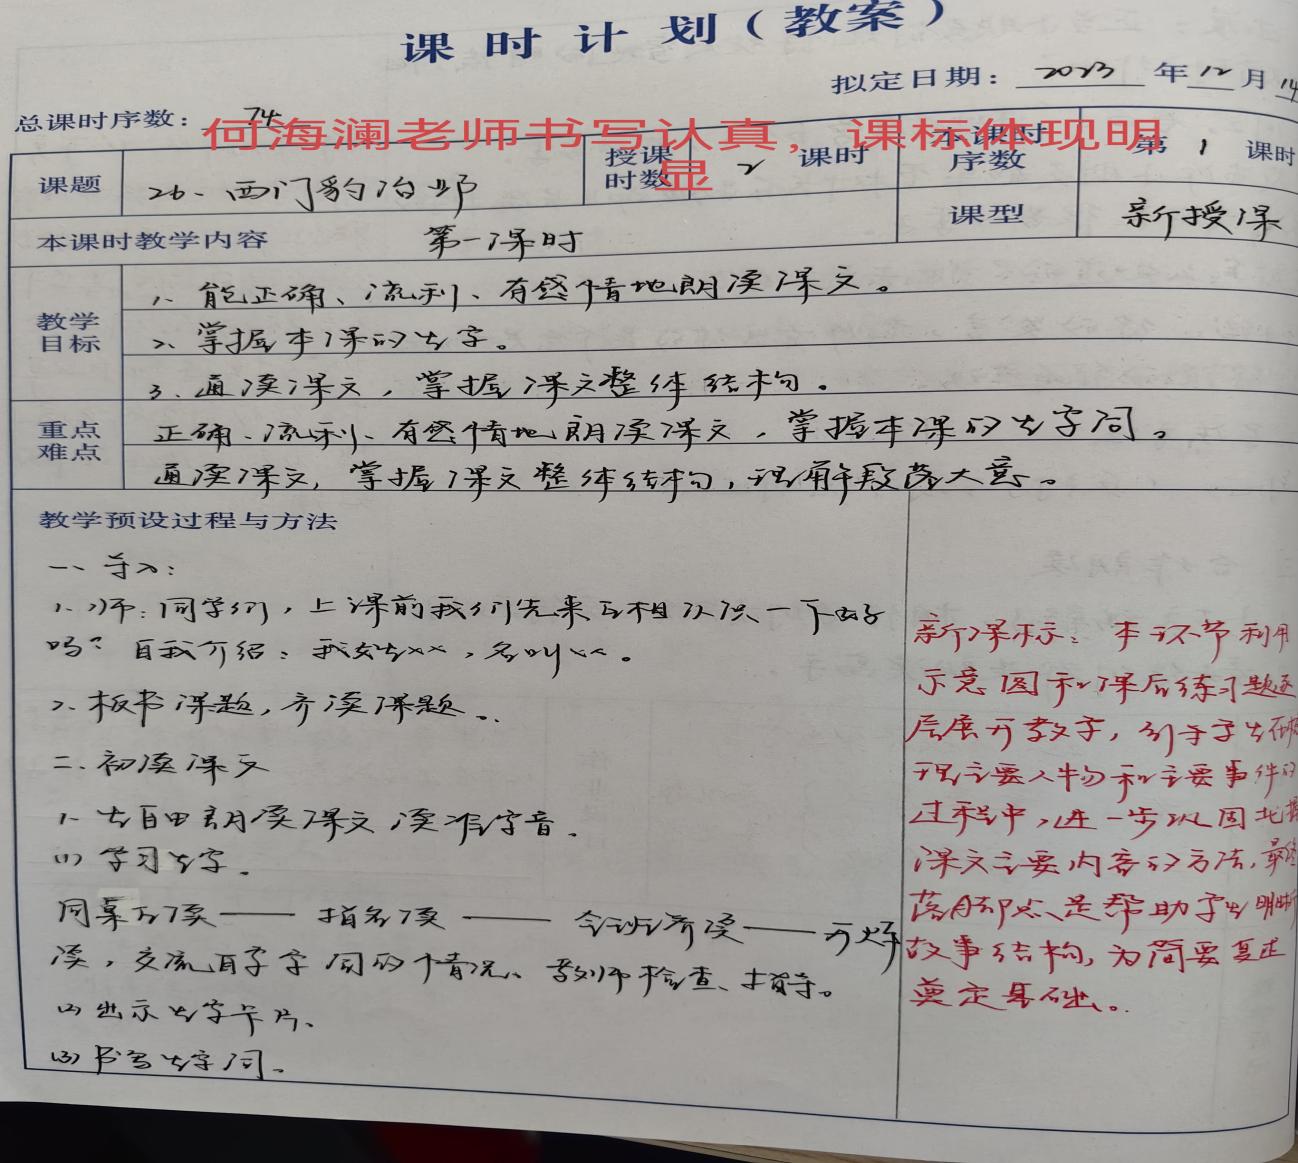 课时计划（教案）
拟定日期：2023年12月14
总课时序数：74
何海澜老师书写认真，课标体现明
显
课题 26、西门豹治邺 授课时数 2 课时 本课时序数 第1课时
本课时教学内容 第一课时 课型 新授课
教学目标
1、能正确、流利、有感情地朗读课文。
2、掌握本课的生字。
3、通读课文，掌握课文整体结构。
重点难点
正确、流利、有感情地朗读课文，掌握本课的生字词。
通读课文，掌握课文整体结构，理解段落大意。
教学预设过程与方法
一、导入：
1、师：同学们，上课前我们先来互相认识一下好
吗？自我介绍：我姓××，名叫××。
2、板书课题，齐读课题。
二、初读课文
1、生自由朗读课文，读准字音。
(1)学习生字。
同桌互读——指名读——全班齐读——开火车
读，交流识字字词的情况、教师检查、指导。
(2)出示生字卡片、
(3)书写生字词。
新课标：本环节利用
示意图和课后练习题逐
层展开教学，引导学生在梳
理主要人物和主要事件的
过程中，进一步巩固把握
课文主要内容的方法，最终
落脚点是帮助学生明晰
故事结构，为简要复述
奠定基础。